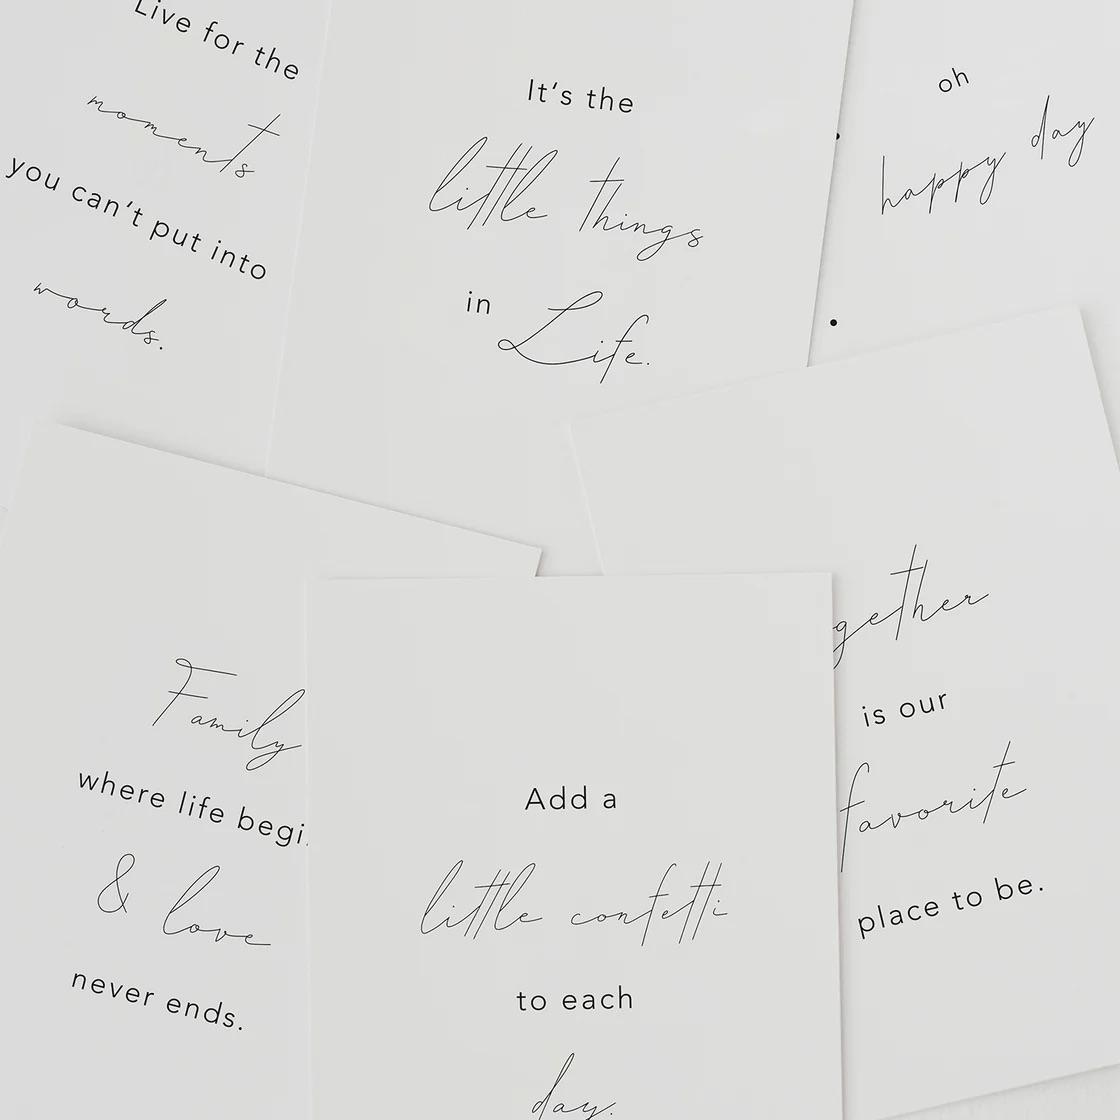 Live for the
moments
you can't put into
words.
It's the
little things
in Life.
oh
happy day
Family
where life begi
& love
never ends.
Add a
little confetti
to each
day.
gether
is our
favorite
place to be.